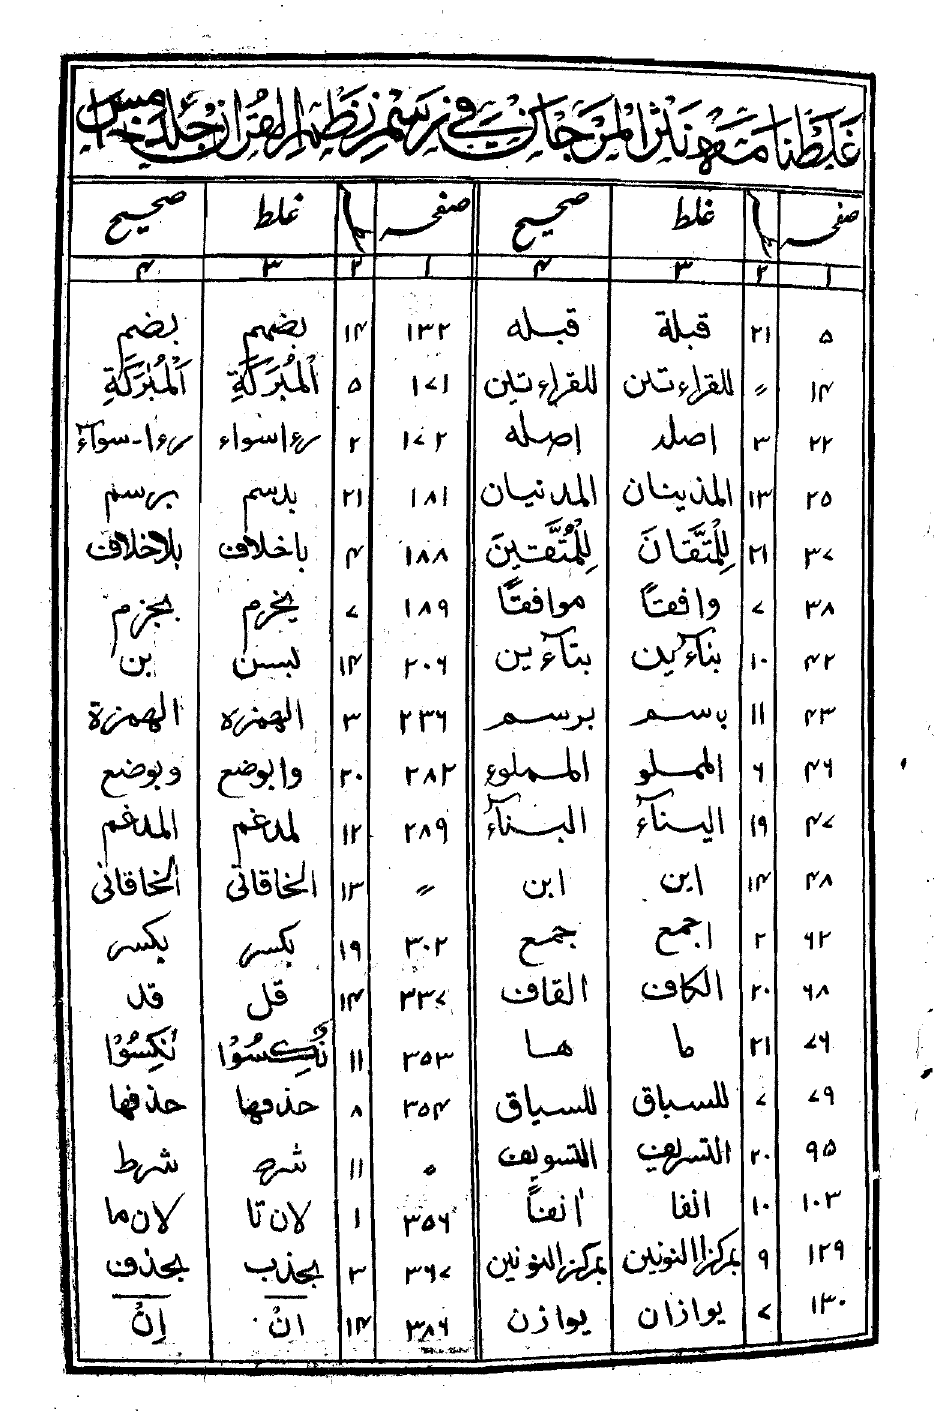 غلطنامہ نثر المرجان فی رسم نظم القرآن جلد خامس
صفحہ | | غلط | صحیح | صفحہ | | غلط | صحیح
۱ | ۲ | ۳ | ۴ | ۱ | ۲ | ۳ | ۴
۵ | ۲۱ | قبلة | قبله | ۱۳۲ | ۱۴ | بضهم | بضم
۱۴ | 〃 | للقراءتين | للقراءتين | ۱۷۱ | ۵ | الْمُبٰرَكَةِ | الْمُبٰرَكَةِ
۲۲ | ۳ | اصلد | اصله | ۱۷۲ | ۲ | رءاسواء | رءا-سوآء
۲۵ | ۱۳ | المذينان | المدنيان | ۱۸۱ | ۲۱ | بدسم | برسم
۳۷ | ۲۱ | لِلْمُتَّقَانَ | لِلْمُتَّقِينَ | ۱۸۸ | ۴ | باخلاف | بلاخلاف
۳۸ | ۷ | وافقتاً | موافقتاً | ۱۸۹ | ۷ | يخرم | بجزم
۴۲ | ۱۰ | بناءين | بتاءين | ۲۰۶ | ۱۴ | لبسن | بن
۴۳ | ۱۱ | بسم | برسم | ۲۳۶ | ۳ | الهمزه | الهمزة
۴۶ | ۶ | المملو | المملوء | ۲۸۲ | ۲۰ | وابوضع | وبوضع
۴۷ | ۱۹ | اليناء | البناء | ۲۸۹ | ۱۲ | لمدغم | المدغم
۴۸ | ۱۴ | اين | ابن | 〃 | ۱۳ | الخاقاتى | الخاقانى
۶۲ | ۲ | اجمع | جمع | ۳۰۲ | ۱۹ | بكسر | بكسر
۶۸ | ۲۰ | الكاف | القاف | ۳۳۷ | ۱۴ | قل | قد
۷۶ | ۲۱ | ما | هـا | ۳۵۳ | ۱۱ | نُكِسُوْا | نُكِسُوْا
۷۹ | ۷ | للسباق | للسياق | ۳۵۴ | ۸ | حذفها | حذفها
۹۵ | ۲۰ | | التسويف | ۵ | ۱۱ | شرح | شرط
۱۰۳ | ۱۰ | انفا | اٰنفاً | ۳۵۶ | ۱ | لان تا | لان ما
۱۲۹ | ۹ | بمركزاالنونين | بمركزالنونين | ۳۶۷ | ۳ | بجذب | بحذف
۱۳۰ | ۷ | يوازان | يوازن | ۳۸۶ | ۱۴ | انْ | اِنَّ